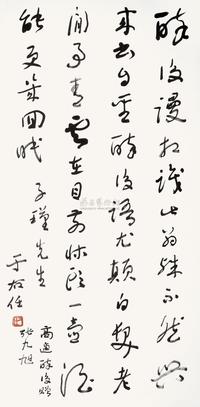 醉後謾相識此翁殊不然興
來書自聖醉後語尤顛白髮老
閒事青雲在目前牀頭一壺酒
能更幾回眠 子瑾先生
于右任
高適醉後贈
張九旭